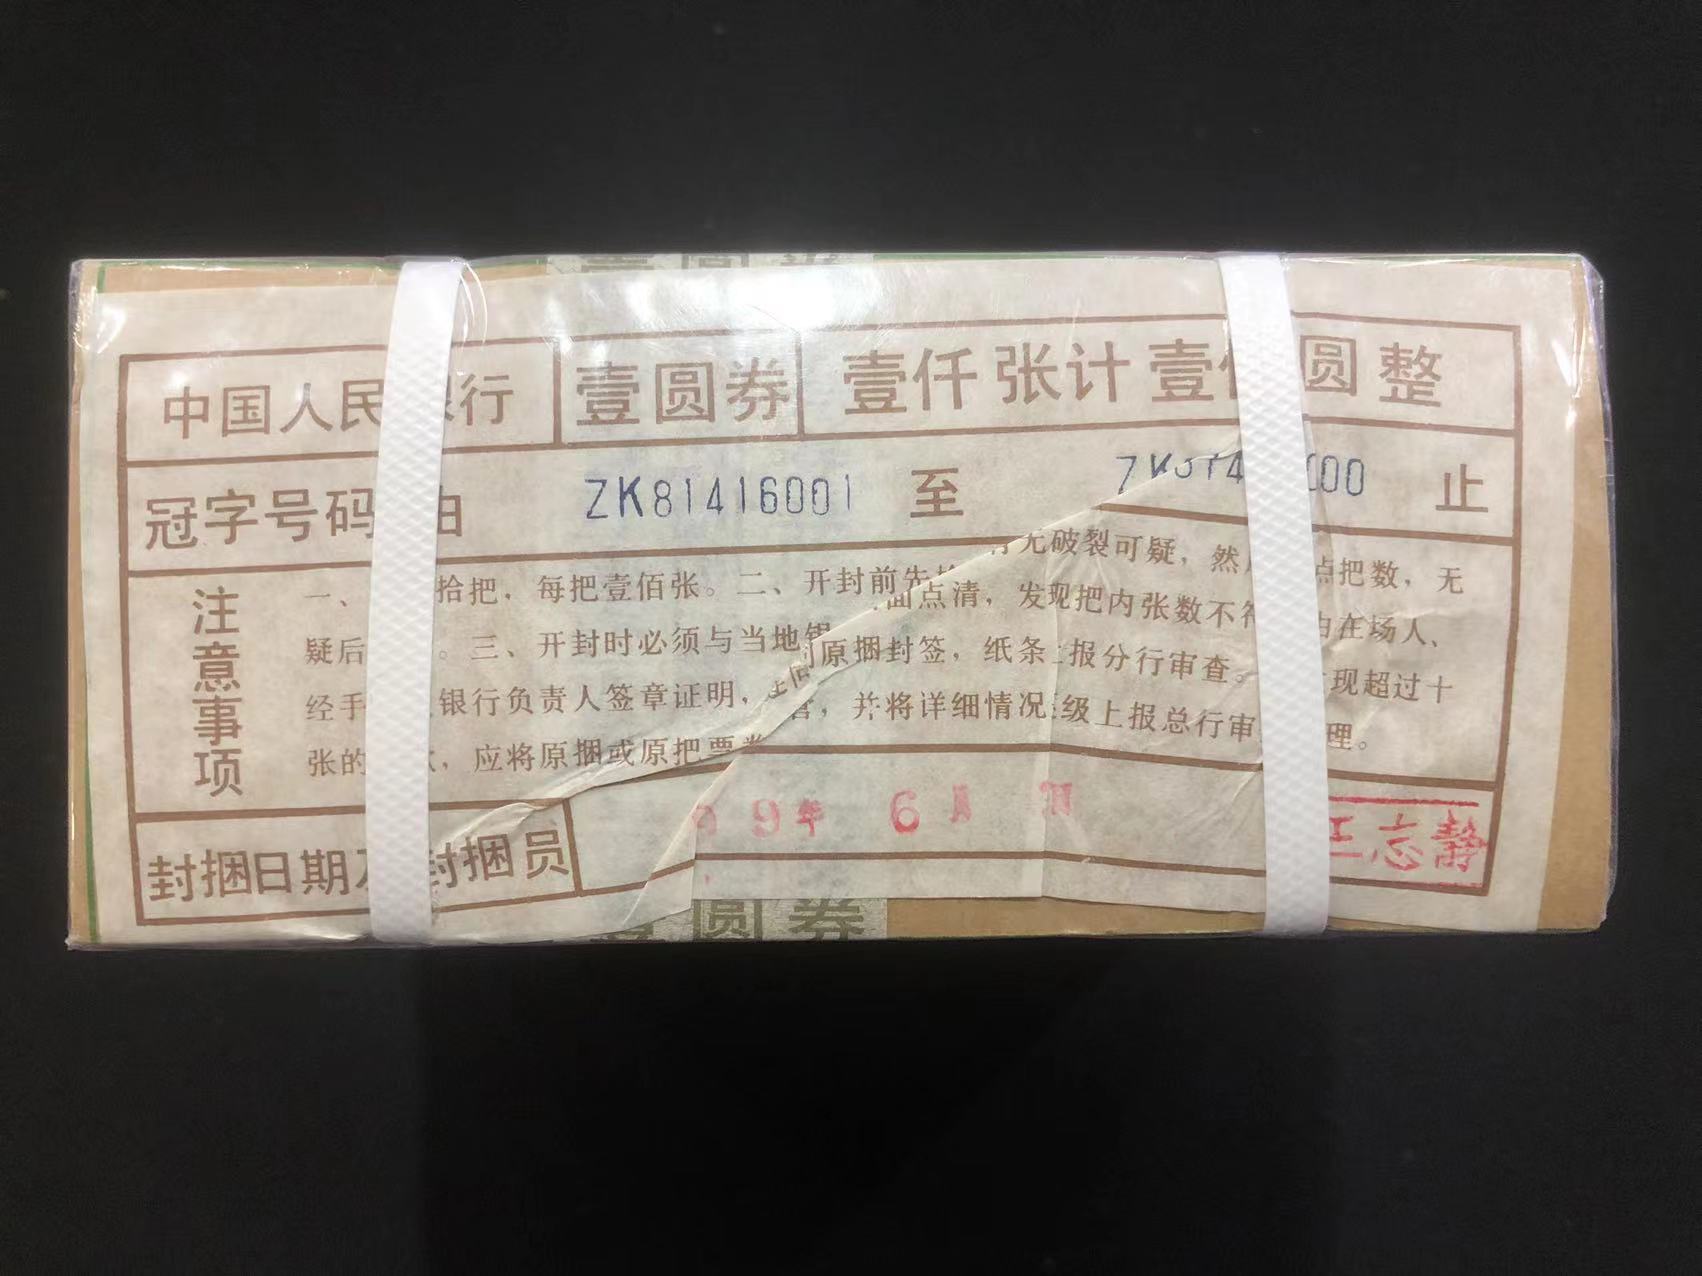 壹圆券
中国人民 行 壹圆券 壹仟张计壹 圆整
冠字号码 由 ZK81416001 至 00 止
注意事项
一、 拾把，每把壹佰张。二、开封前先 有无破裂可疑，然 点把数，无
疑后 。三、开封时必须与当地银 面点清，发现把内张数不符 由在场人、
经手 银行负责人签章证明， 原捆封签，纸条 上报分行审查。 现超过十
张的 ，应将原捆或原把票券 ，并将详细情况 级上报总行审 理。
封捆日期 封捆员 99年 6月
静志王
壹圆券